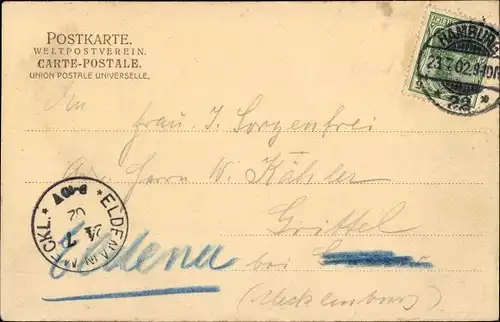 POSTKARTE.
WELTPOSTVEREIN.
CARTE-POSTALE.
UNION POSTALE UNIVERSELLE.
HAMBURG
23.7.02.9-10
* 22 *
An
Frau J. Sorgenfrei
Herrn W. Kähler
Grittel
Eldena bei
(Mecklenburg)
* ELDENA IN MECKL. *
24 7
02